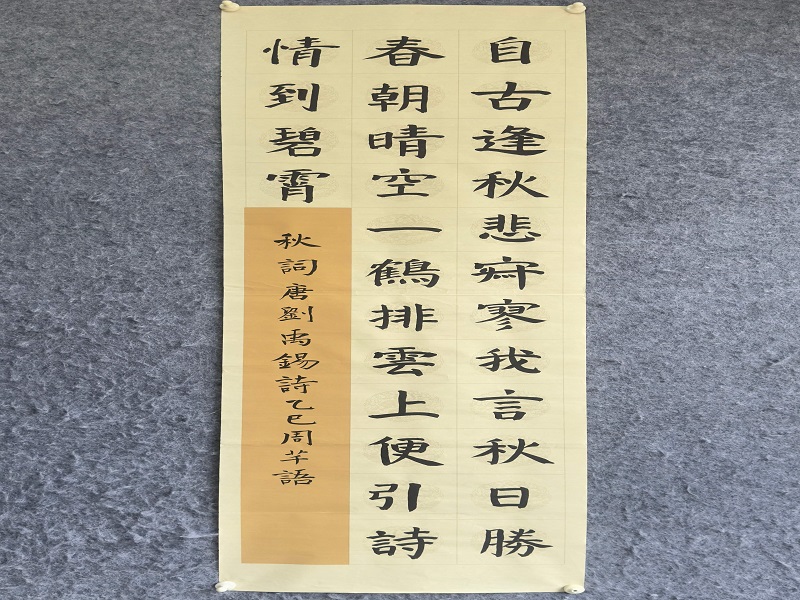 自古逢秋悲寂寥我言秋日勝
春朝晴空一鶴排雲上便引詩
情到碧霄
秋詞唐劉禹錫詩乙巳周芊語